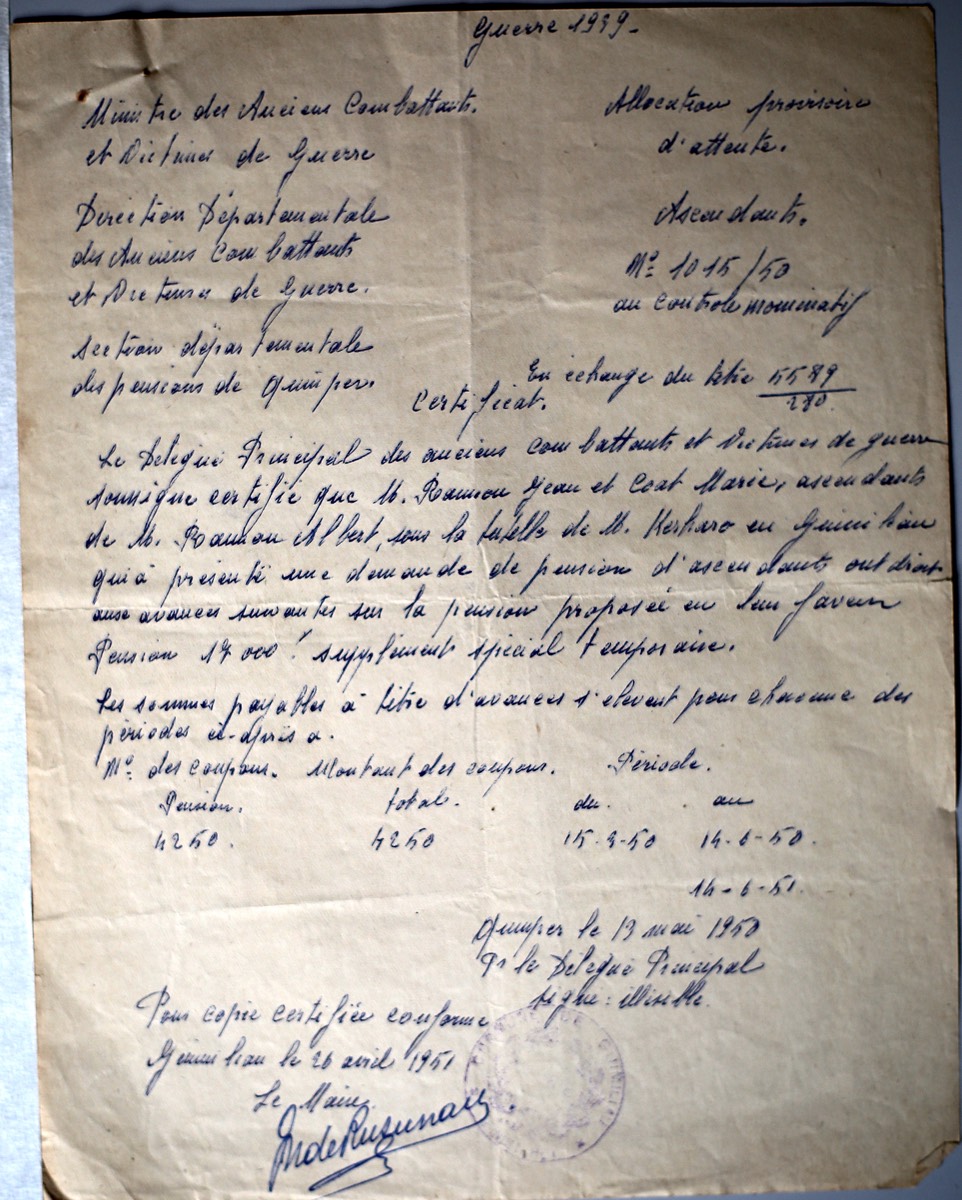 Guerre 1939-
Ministre des Anciens Combattants.
et Victimes de Guerre
Allocation provisoire
d'attente.
Direction Départementale
des Anciens Combattants
et Victimes de Guerre.
Ascendants.
Nº 1015/50
au controle nominatif
Section départementale
des pensions de Quimper.
En échange du titre 5589
280.
Certificat.
Le Délégué Principal des anciens combattants et Victimes de guerre
soussigné certifie que M. Jean et Coat Marie, ascendants
de M. Albert, sous la tutelle de M. Kerharo en Guimiliau
qui à présenté une demande de pension d'ascendants ont droit
aux avances suivantes sur la pension proposée en leur faveur
Pension 17000 f supplément spécial temporaire.
Les sommes payables à titre d'avances s'elevent pour chacune des
périodes ci-après a.
Nº des coupons. Montant des coupons. Période.
Pension. total. du au
4250. 4250 14-6-50.
14-6-51.
Quimper le 13 mai 1950
Pr le Délégué Principal
signé: illisible.
Pour copie certifiée conforme
Guimiliau le 26 avril 1951
Le Maire.